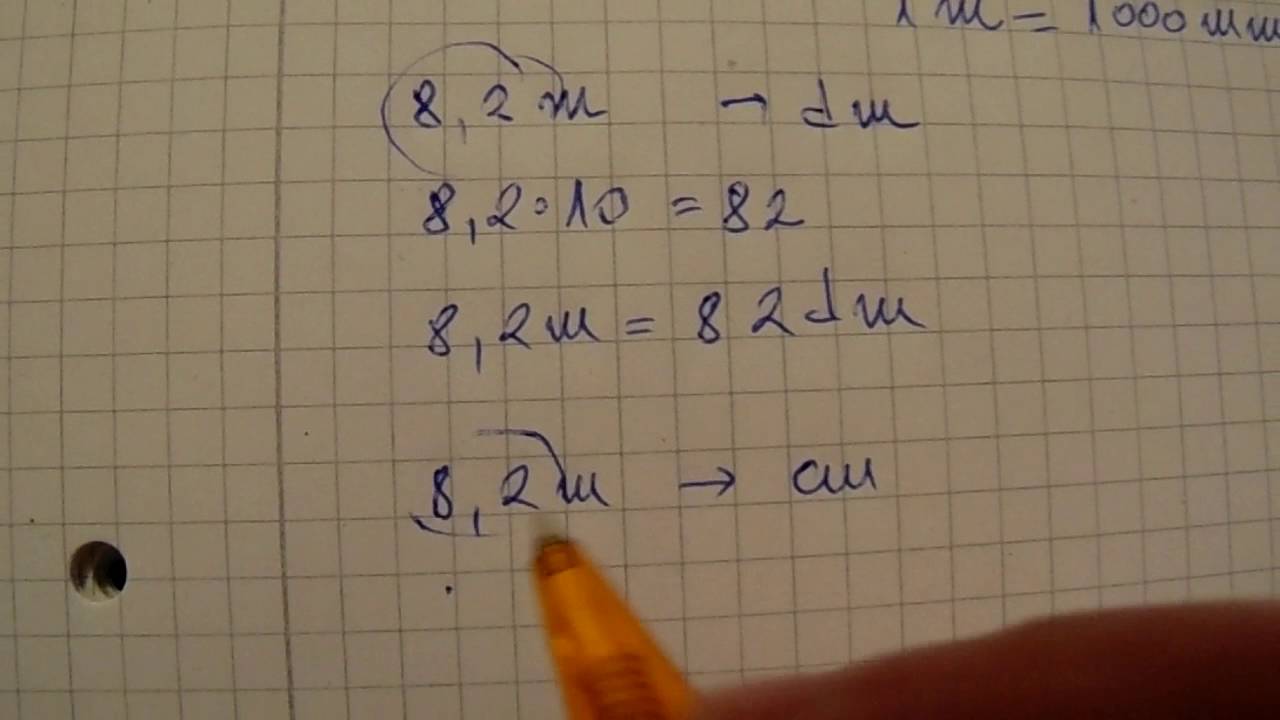 1 m = 1000 mm
8,2 m → dm
8,2 · 10 = 82
8,2 m = 82 dm
8,2 m → cm